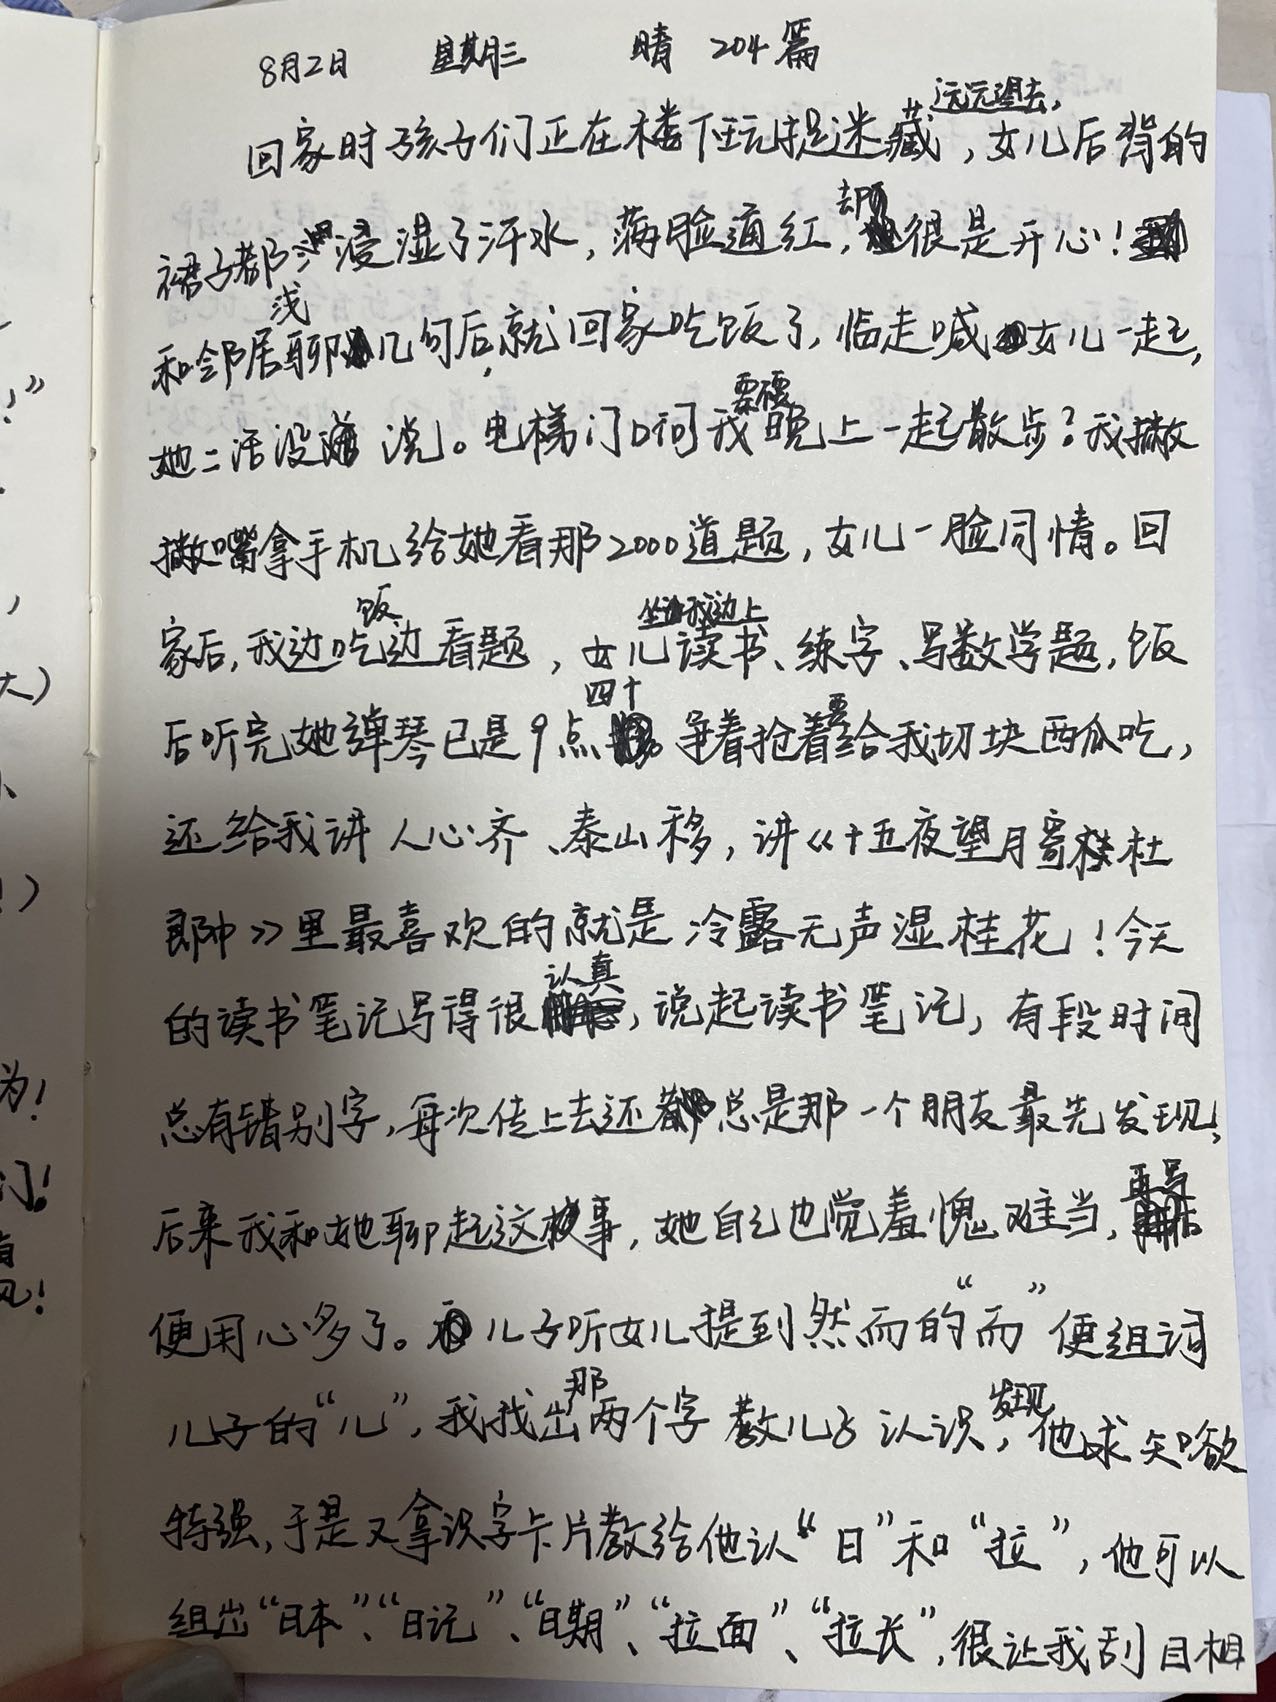 8月2日 星期三 晴 204篇
回家时孩子们正在楼下玩捉迷藏,远远望去,女儿后背的
裙子都浸湿了汗水,满脸通红,却很是开心!
和邻居浅聊几句后,就回家吃饭了,临走喊女儿一起,
她二话没说。电梯门口问我要不要晚上一起散步?我撇
撇嘴拿手机给她看那2000道题,女儿一脸同情。回
家后,我边吃饭边看题,女儿坐我边上读书、练字、写数学题,饭
后听完她弹琴已是9点四十 争着抢着要给我切块西瓜吃,
还给我讲人心齐、泰山移,讲《十五夜望月寄杜
郎中》里最喜欢的就是冷露无声湿桂花!今天
的读书笔记写得很认真,说起读书笔记,有段时间
总有错别字,每次传上去还总是那一个朋友最先发现,
后来我和她聊起这事,她自己也觉羞愧难当,再写
便用心多了。儿子听女儿提到然而的“而”便组词
儿子的“儿”,我找出那两个字教儿子认识,发现他求知欲
特强,于是又拿识字卡片教给他认“日”和“拉”,他可以
组出“日本”、“日记”、“日期”、“拉面”、“拉长”,很让我刮目相
为!
大)